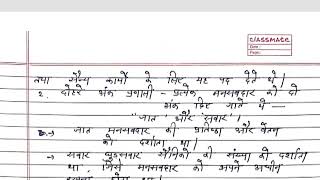 CLASSMATE
Date :
Page :
तथा सैन्य कार्यो के लिए यह पद देते थे।
2. दोहरे अंक प्रणाली - प्रत्येक मनसबदार को दो
अंक दिए जाते थे —
"जात और सवार"।
जात मनसबदार की प्रतिष्ठा और वेतन
को दर्शाता था।
→ सवार घुड़सवार सैनिकों की संख्या को दर्शाता
था, जिसे मनसबदार को अपने अधीन